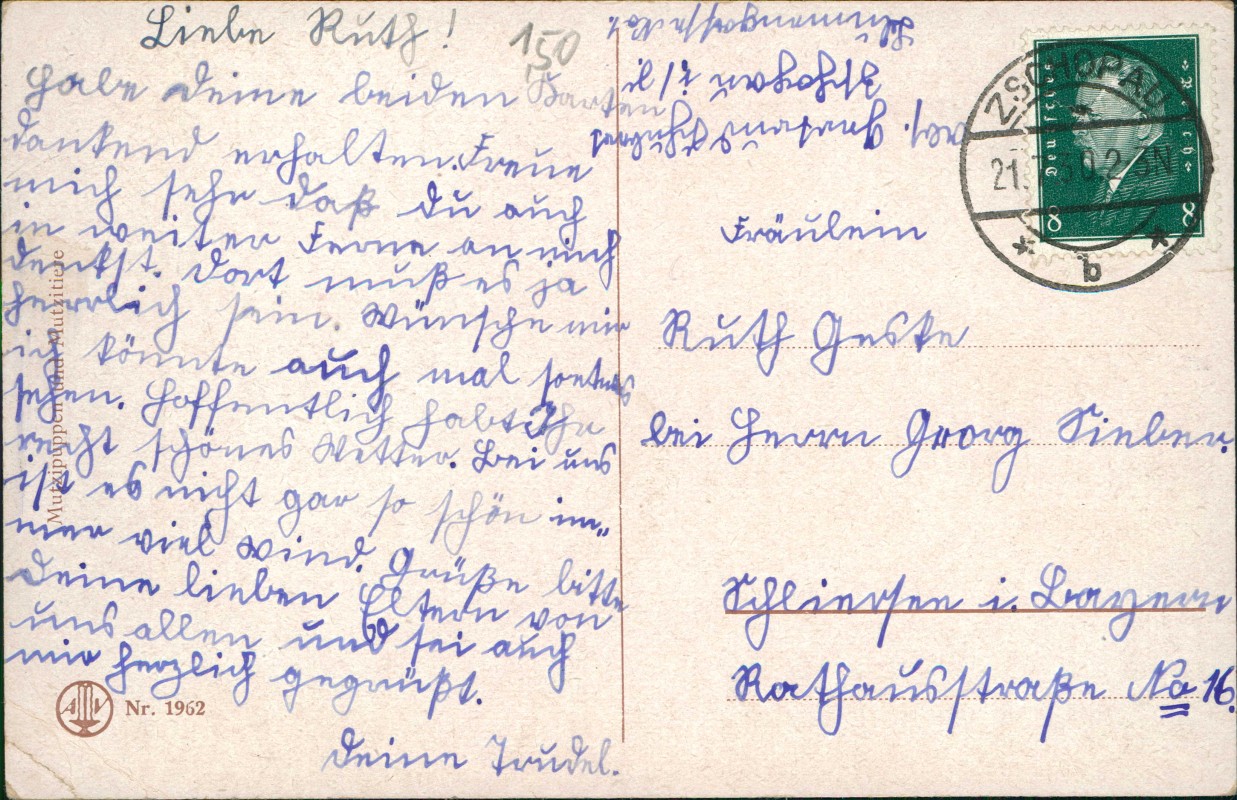 Liebe Ruth!
150
Habe Deine beiden Karten
dankend erhalten. Freue
mich sehr daß Du auch
in weiter Ferne an mich
denkst. Dort muß es ja
herrlich sein. Wünsche mir
ich könnte auch mal so etwas
sehen. Hoffentlich habt Ihr
recht schönes Wetter. Bei uns
ist es nicht gar so schön im„
mer viel Wind. Grüße bitte
Deine lieben Eltern von
uns allen und sei auch
mir herzlich gegrüßt.
Deine Trudel.
Mutzipuppen und Mutzitiere
Nr. 1962
Abs.
Zschopau i/S.
Deutsches Reich
8 8
ZSCHOPAU
21. 7. 30. 2-3N
* b *
Fräulein
Ruth Geske
bei Herrn Georg Sieber.
Schliersee i. Bayern
Rathausstraße No 16.